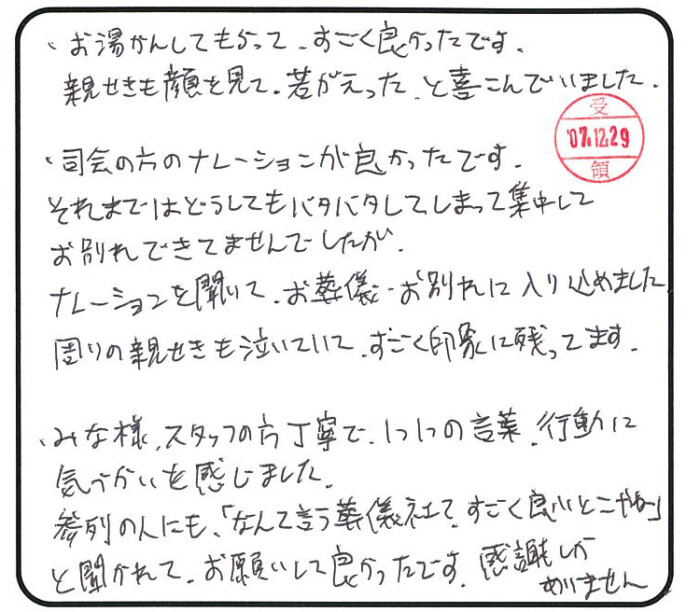 ・お湯かんしてもらって、すごく良かったです。
親せきも顔を見て、若がえった、と喜こんでいました。
受
'07.12.29
領
・司会の方のナレーションが良かったです。
それまではどうしてもバタバタしてしまって集中して
お別れできてませんでしたが、
ナレーションを聞いて、お葬儀・お別れに入り込めました
周りの親せきも泣いていて、すごく印象に残ってます。
・みな様、スタッフの方丁寧で、1つ1つの言葉、行動に
気づかいを感じました。
参列の人にも、「なんて言う葬儀社て、すごく良いとこやね」
と聞かれて、お願いして良かったです。感謝しか
ありません